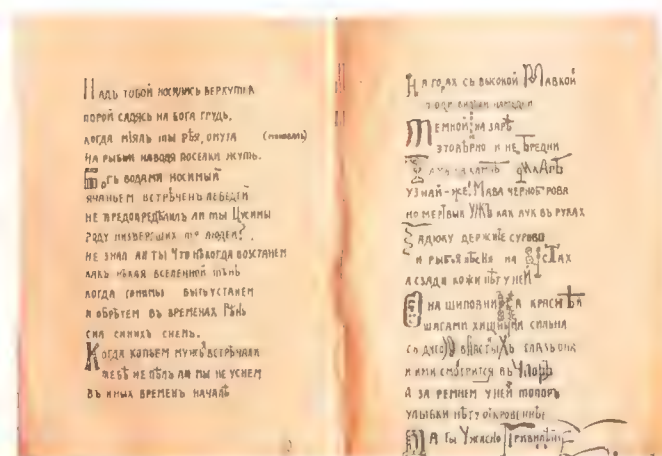 Надъ тобой носились беркута
порой садясь на бога грудь,
когда мiялъ ты рѣя, омута
на рыбьи наводя поселки жуть.
Богъ водами носимый
ячаньем встрѣченъ лебедей
не предопредѣлилъ ли ты Цусимы
роду низвергших тя людей?
не знал ли ты что нѣкогда возстанем
какъ нѣкая вселенной тѣнь
когда гонимы быть устанем
и обрѣтем въ временах рѣнь
сил синихъ снемъ.
Когда копьем мужья встрѣчали
тебѣ не пѣлъ ли мы не уснем
въ иных временъ началѣ
На горах съ высокой Мавкой
темной на зарѣ
это вѣрно и не бредни
узнай-же! Мава черноброва
но мертвый ужъ как лук въ руках
Гадюку держите сурово
и рыбья пѣсня на устах
а сзади кожи нѣт у ней
она шиповника краснѣй
шагами хищными сильна
с дугою властных глаз она
и ими смотрится въ упоръ
А за ремнем у ней топоръ
улыбки нѣту откровеннѣй
Да ты ужасно привиденье